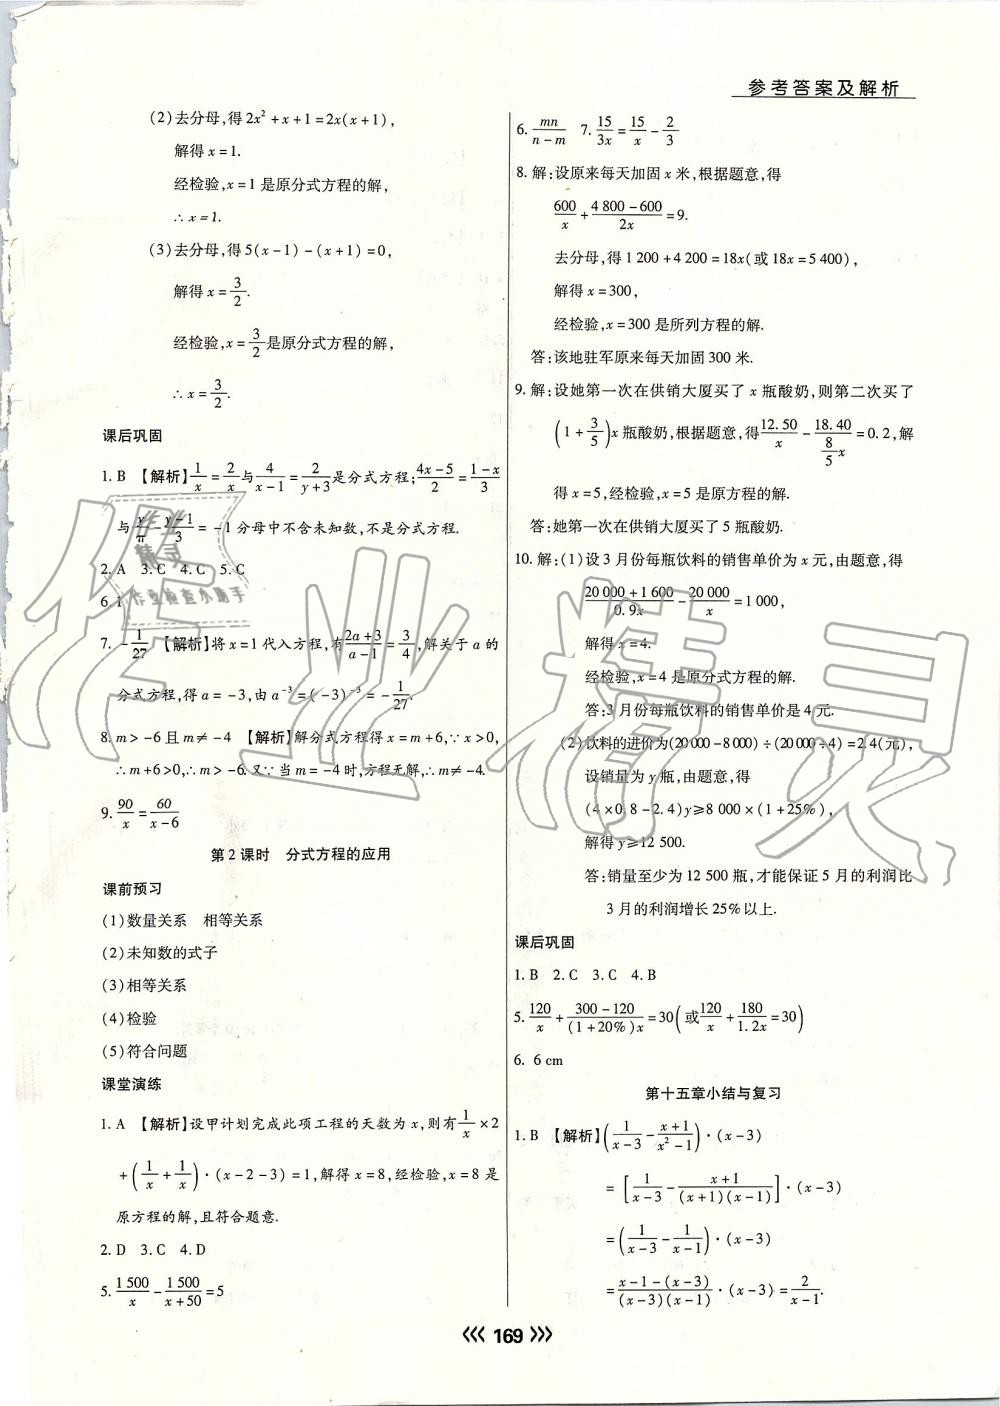 参考答案及解析
(2)去分母,得2x²+x+1=2x(x+1),
解得x=1.
经检验,x=1是原分式方程的解,
∴x=1.
(3)去分母,得5(x-1)-(x+1)=0,
解得x=3/2.
经检验,x=3/2是原分式方程的解,
∴x=3/2.
课后巩固
1. B 【解析】1/x=2/x与4/(x-1)=2/(y+3)是分式方程;(4x-5)/2=(1-x)/3
与x/π-(y-1)/3=-1分母中不含未知数,不是分式方程.
2. A 3. C 4. C 5. C
6. 1
7. -1/27 【解析】将x=1代入方程,有(2a+3)/(a-1)=3/4,解关于a的
分式方程,得a=-3,由a⁻³=(-3)⁻³=-1/27.
8. m>-6且m≠-4 【解析】解分式方程得x=m+6,∵x>0,
∴m+6>0,∴m>-6.又∵当m=-4时,方程无解,∴m≠-4.
9. 90/x=60/(x-6)
第2课时 分式方程的应用
课前预习
(1)数量关系 相等关系
(2)未知数的式子
(3)相等关系
(4)检验
(5)符合问题
课堂演练
1. A 【解析】设甲计划完成此项工程的天数为x,则有1/x×2
+(1/x+1/x)·(x-2-3)=1,解得x=8,经检验,x=8是
原方程的解,且符合题意.
2. D 3. C 4. D
5. 1 500/x-1 500/(x+50)=5
6. mn/(n-m) 7. 15/3x=15/x-2/3
8. 解:设原来每天加固x米,根据题意,得
600/x+(4 800-600)/2x=9.
去分母,得1 200+4 200=18x(或18x=5 400),
解得x=300,
经检验,x=300是所列方程的解.
答:该地驻军原来每天加固300米.
9. 解:设她第一次在供销大厦买了x瓶酸奶,则第二次买了
(1+3/5)x瓶酸奶,根据题意,得12.50/x-18.40/(8/5 x)=0.2,解
得x=5,经检验,x=5是原方程的解.
答:她第一次在供销大厦买了5瓶酸奶.
10. 解:(1)设3月份每瓶饮料的销售单价为x元,由题意,得
(20 000+1 600)/0.9x-20 000/x=1 000,
解得x=4.
经检验,x=4是原分式方程的解.
答:3月份每瓶饮料的销售单价是4元.
(2)饮料的进价为(20 000-8 000)÷(20 000÷4)=2.4(元),
设销量为y瓶,由题意,得
(4×0.8-2.4)y≥8 000×(1+25%),
解得y≥12 500.
答:销量至少为12 500瓶,才能保证5月的利润比
3月的利润增长25%以上.
课后巩固
1. B 2. C 3. C 4. B
5. 120/x+(300-120)/((1+20%)x)=30(或120/x+180/1.2x=30)
6. 6 cm
第十五章小结与复习
1. B 【解析】(1/(x-3)-(x+1)/(x²-1))·(x-3)
=[1/(x-3)-(x+1)/((x+1)(x-1))]·(x-3)
=(1/(x-3)-1/(x-1))·(x-3)
=(x-1-(x-3))/((x-3)(x-1))·(x-3)=2/(x-1).
⟪ 169 ⟫
作业精灵
作业精灵
作业检查小助手